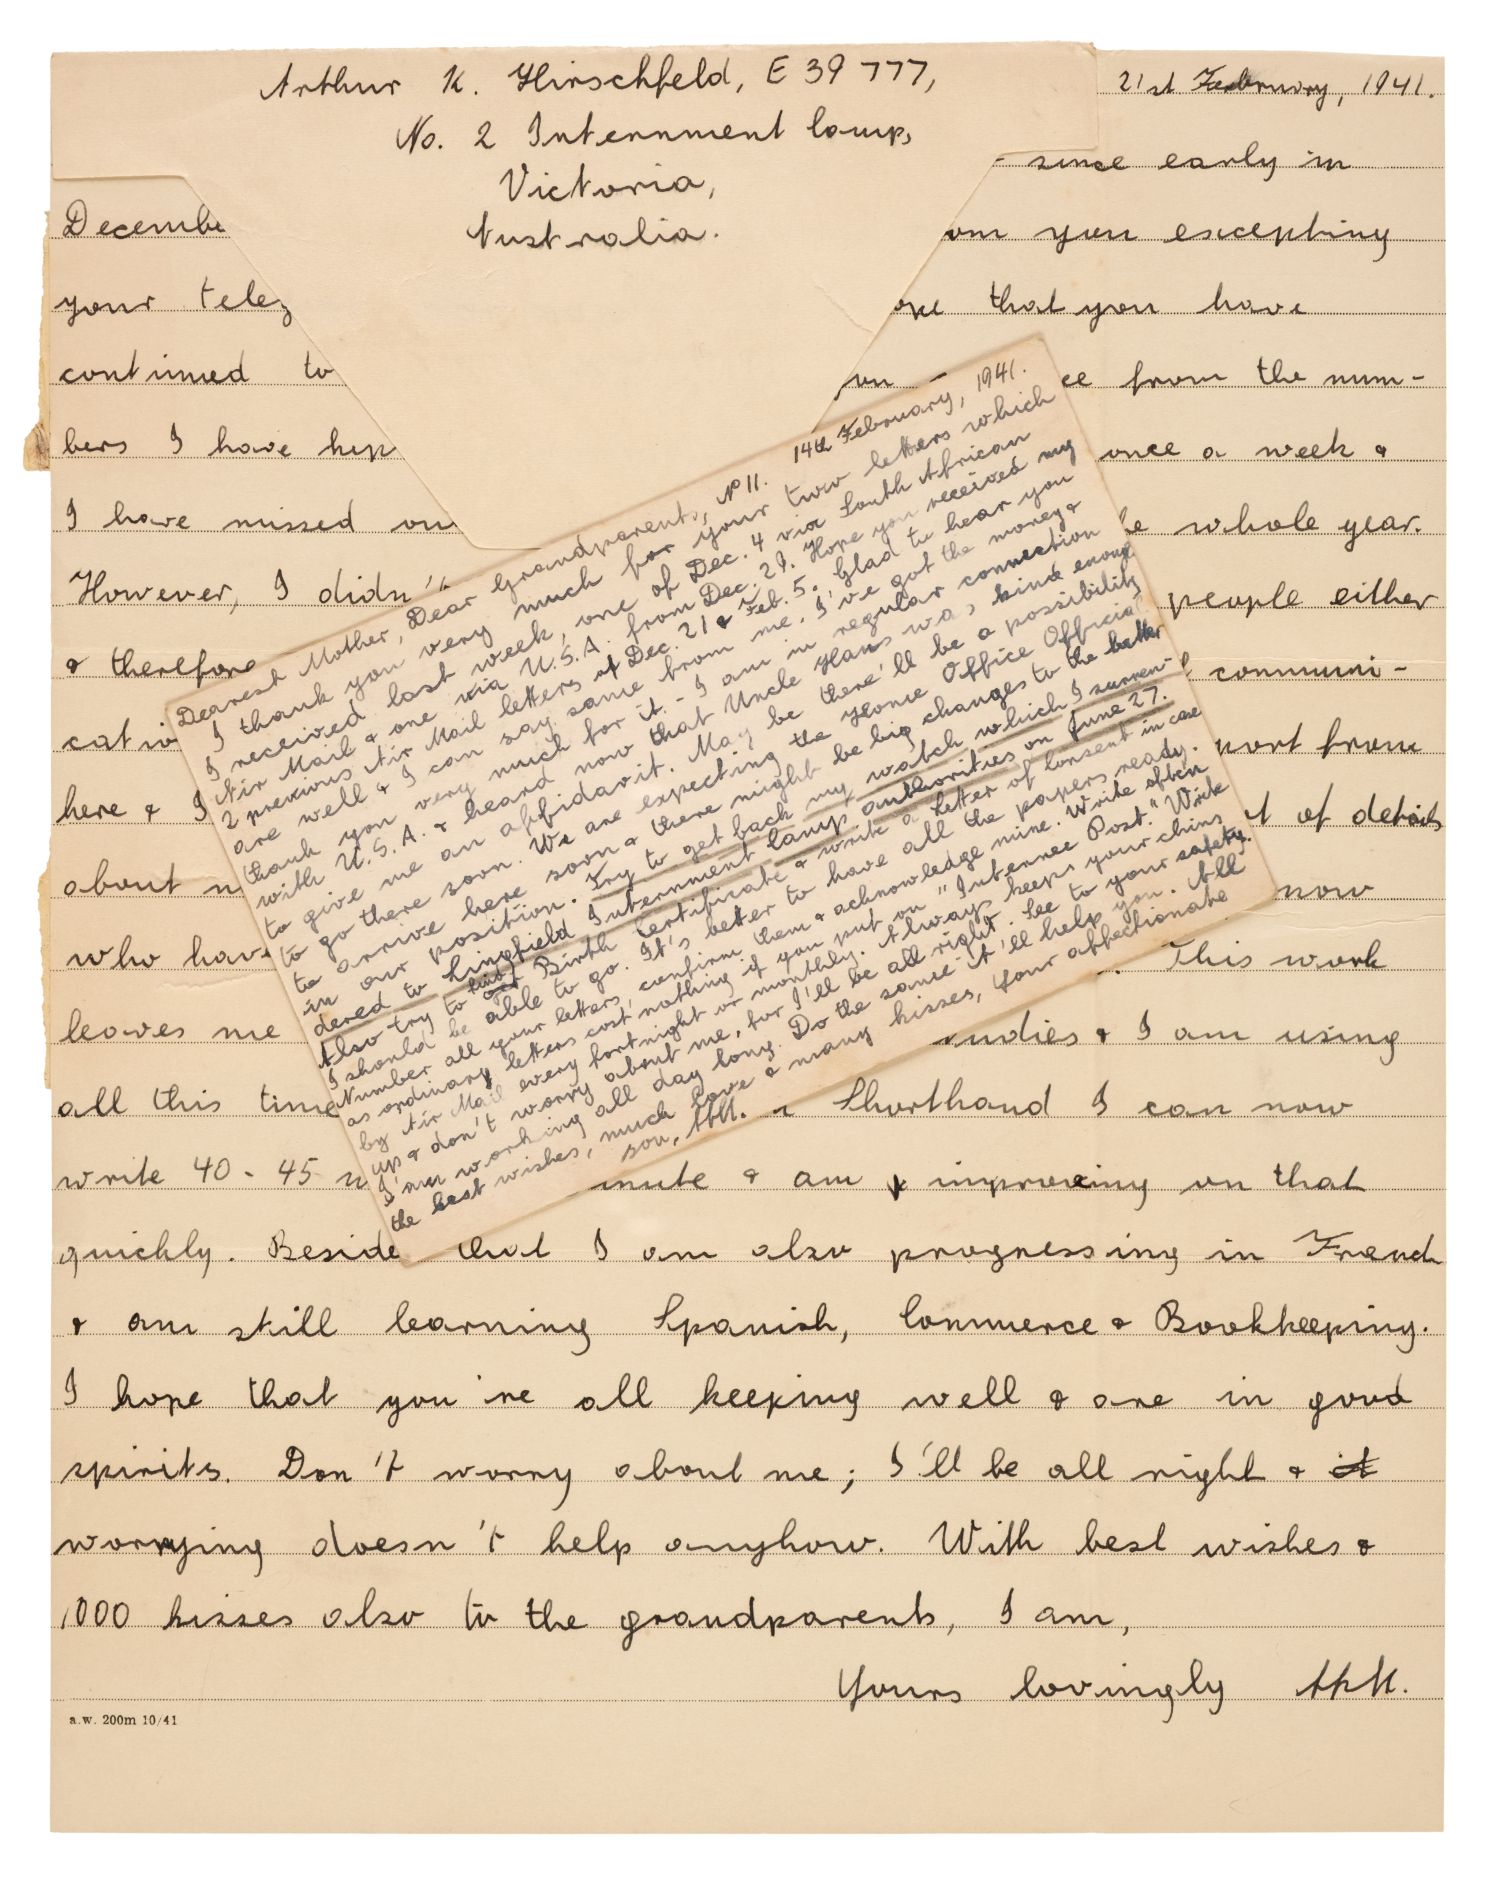 Arthur K. Hirschfeld, E 39777,
No. 2 Internment Camp,
Victoria,
Australia.
21st February, 1941.
- since early in
Decembe
om you excepting
your teleg
ope that you have
continued to
ce from the num-
bers I have kep
once a week &
I have missed
whole year.
However, I didn't
people either
& therefore
communi-
catio
port from
here & I
t of details
about m
now
who have
This work
leaves me
tudies & I am using
all this time
Shorthand I can now
write 40 - 45 w
inute & am improving on that
quickly. Beside that I am also progressing in French
& am still learning Spanish, Commerce & Bookkeeping.
I hope that you're all keeping well & are in good
spirits. Don't worry about me; I'll be all right & it
worrying doesn't help anyhow. With best wishes &
1000 kisses also to the grandparents, I am,
Yours lovingly
a.w. 200m 10/41
No 11. 14th February, 1941.
Dearest Mother, Dear Grandparents,
I thank you very much for your two letters which
I received last week, one of Dec. 4 via South African
Air Mail & one via U.S.A. from Dec. 29. Hope you received my
2 previous Air Mail letters of Dec. 21 & Feb. 5. Glad to hear you
are well & I can say same from me. I've got the money &
thank you very much for it. - I am in regular connection
with U.S.A. & heard now that Uncle Hans was kind enough
to give me an affidavit. May be there'll be a possibility
to go there soon. We are expecting the Home Office Official
to arrive here soon & there might be big changes to the better
in our position. Try to get back my watch which I surren-
dered to Lingfield Internment Camp authorities on June 27.
Also try to find Birth Certificate & write a letter of consent in case
I should be able to go. It's better to have all the papers ready.
Number all your letters, confirm them & acknowledge mine. Write often
as ordinary letters cost nothing if you put on "Internee Post." Write
by Air Mail every fortnight or monthly. Always keep your chins
up & don't worry about me, for I'll be all right. See to your safety.
I'm working all day long. Do the same it'll help you. All
the best wishes, much love & many kisses, Your affectionate
son,